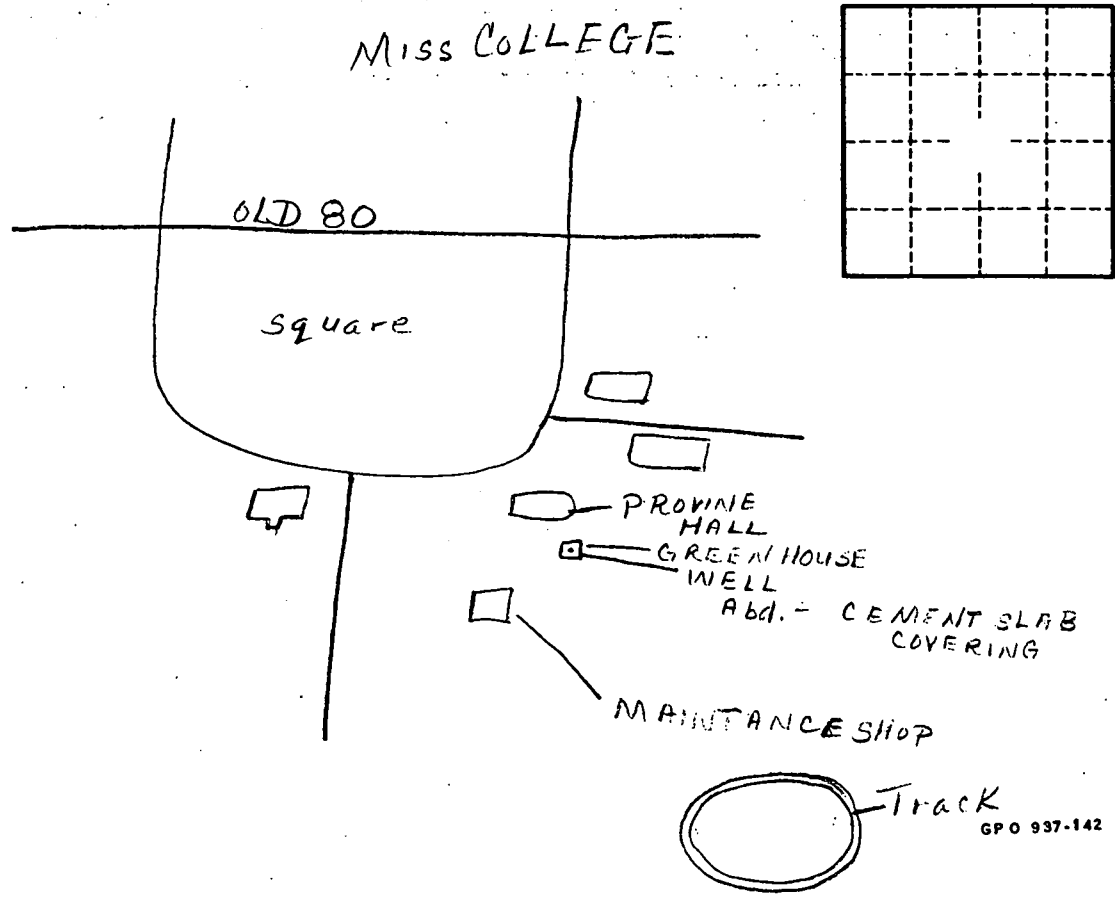 Miss COLLEGE
OLD 80
square
PROVINE
HALL
GREENHOUSE
WELL
Abd. - CEMENT SLAB
COVERING
MAINTANCE SHOP
Track
GPO 937-142